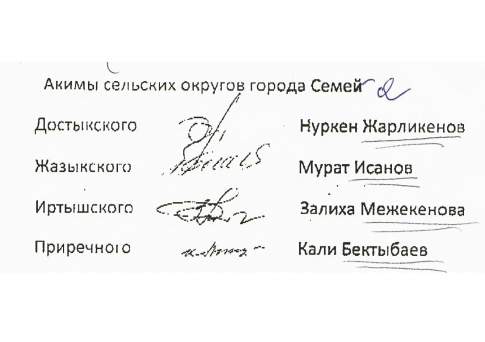 Акимы сельских округов города Семей
Достыкского Нуркен Жарликенов
Жазыкского Мурат Исанов
Иртышского Залиха Межекенова
Приречного Кали Бектыбаев